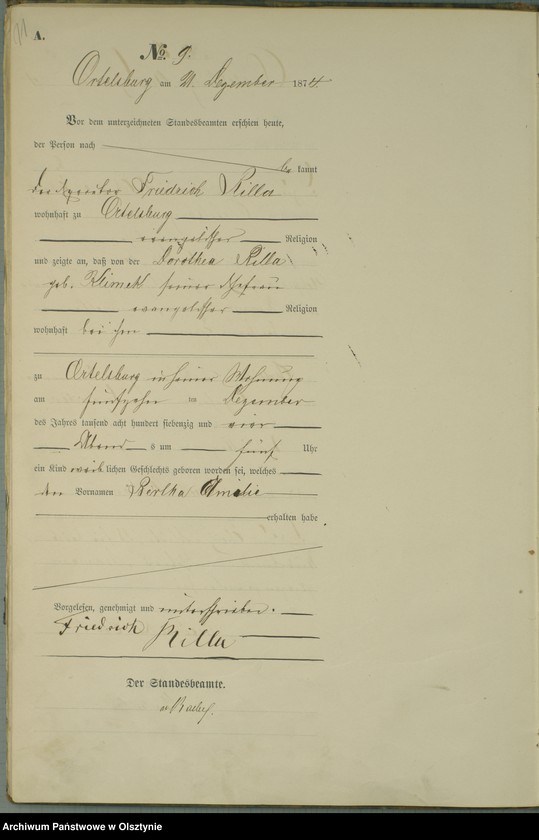 A.
No. 9.
Ortelsburg am 21 Dezember 1874
Vor dem unterzeichneten Standesbeamten erschien heute,
der Person nach
be kannt
der Friedrich Killa
wohnhaft zu Ortelsburg
evangelischer Religion
und zeigte an, daß von der Dorothea Killa
geb. Klimek seiner Ehefrau
evangelischer Religion
wohnhaft bei ihm
zu Ortelsburg in seiner Wohnung
am fünfzehn ten Dezember
des Jahres tausend acht hundert siebenzig und vier
Abend s um fünf Uhr
ein Kind weib lichen Geschlechts geboren worden sei, welches
den Vornamen Bertha Amelie
erhalten habe
Vorgelesen, genehmigt und unterschrieben.
Friedrich Killa
Der Standesbeamte.
Archiwum Państwowe w Olsztynie